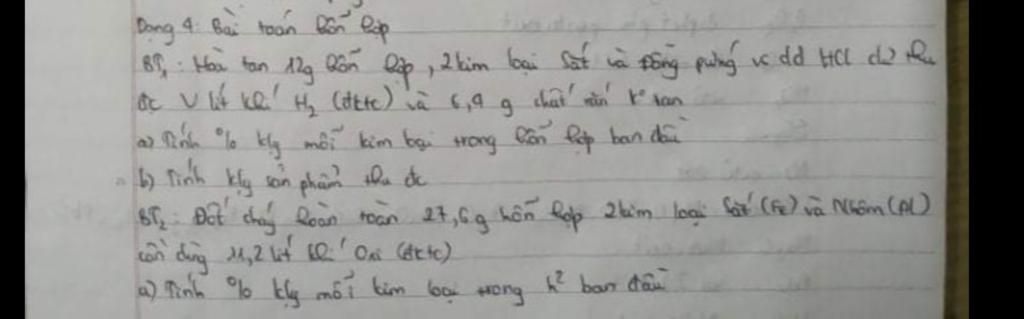 Dạng 4: Bài toán hỗn hợp
BT1: Hoà tan 12g hỗn hợp, 2 kim loại Sắt và Đồng pưhg vs dd HCl dư thu
đc V lít khí H2 (đktc) và 6,4 g chất rắn k° tan
a) Tính % klg mỗi kim loại trong hỗn hợp ban đầu
b) Tính klg sản phẩm thu đc
BT2: Đốt cháy hoàn toàn 27,6g hỗn hợp 2 kim loại Sắt (Fe) và Nhôm (Al)
cần dùng 11,2 lít khí Oxi (đktc)
a) Tính % klg mỗi kim loại trong h² ban đầu